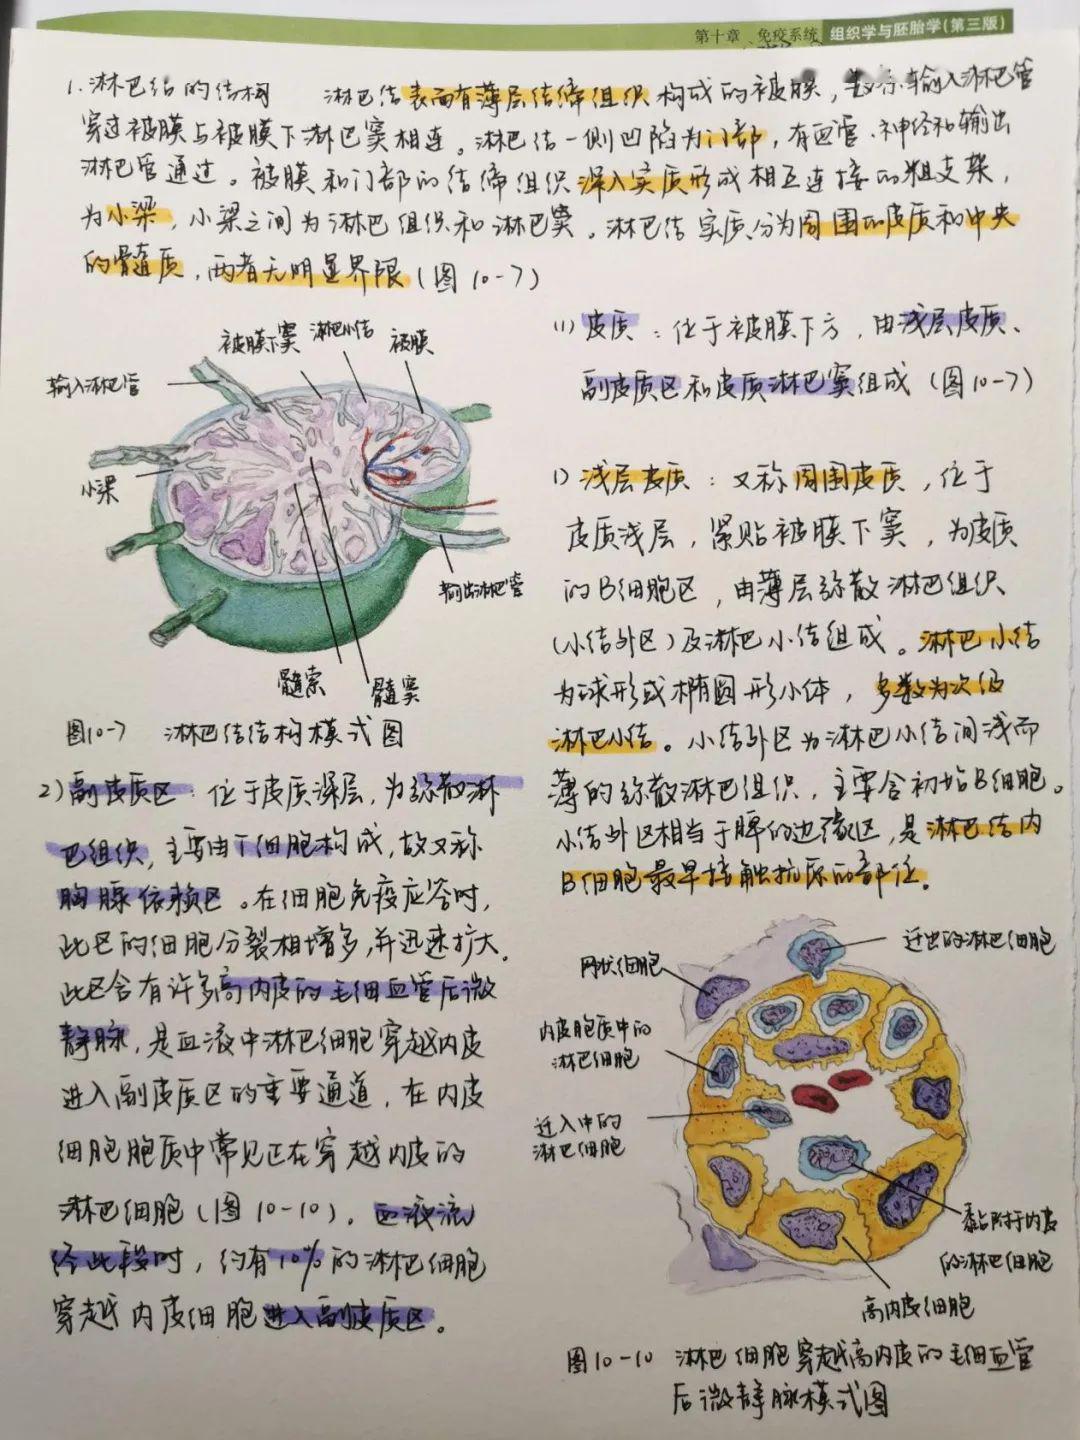 第十章 免疫系统 组织学与胚胎学(第三版)
1.淋巴结的结构 淋巴结表面有薄层结缔组织构成的被膜,数条输入淋巴管
穿过被膜与被膜下淋巴窦相连。淋巴结一侧凹陷为门部,有血管、神经和输出
淋巴管通过。被膜和门部的结缔组织深入实质形成相互连接的粗支架,
为小梁,小梁之间为淋巴组织和淋巴窦。淋巴结实质分为周围的皮质和中央
的髓质,两者无明显界限(图10-7)
被膜下窦 淋巴小结 被膜
输入淋巴管
小梁
输出淋巴管
髓索 髓窦
图10-7 淋巴结结构模式图
(1)皮质:位于被膜下方,由浅层皮质、
副皮质区和皮质淋巴窦组成(图10-7)
1)浅层皮质:又称周围皮质,位于
皮质浅层,紧贴被膜下窦,为皮质
的B细胞区,由薄层弥散淋巴组织
(小结外区)及淋巴小结组成。淋巴小结
为球形或椭圆形小体,多数为次级
淋巴小结。小结外区为淋巴小结间浅而
薄的弥散淋巴组织,主要含初始B细胞。
小结外区相当于脾的边缘区,是淋巴结内
B细胞最早接触抗原的部位。
2)副皮质区:位于皮质深层,为弥散淋
巴组织,主要由T细胞构成,故又称
胸腺依赖区。在细胞免疫应答时,
此区的细胞分裂相增多,并迅速扩大。
此区含有许多高内皮的毛细血管后微
静脉,是血液中淋巴细胞穿越内皮
进入副皮质区的重要通道,在内皮
细胞胞质中常见正在穿越内皮的
淋巴细胞(图10-10)。血液流
经此段时,约有10%的淋巴细胞
穿越内皮细胞进入副皮质区。
迁出的淋巴细胞
网状细胞
内皮胞质中的
淋巴细胞
迁入中的
淋巴细胞
黏附于内皮
的淋巴细胞
高内皮细胞
图10-10 淋巴细胞穿越高内皮的毛细血管
后微静脉模式图